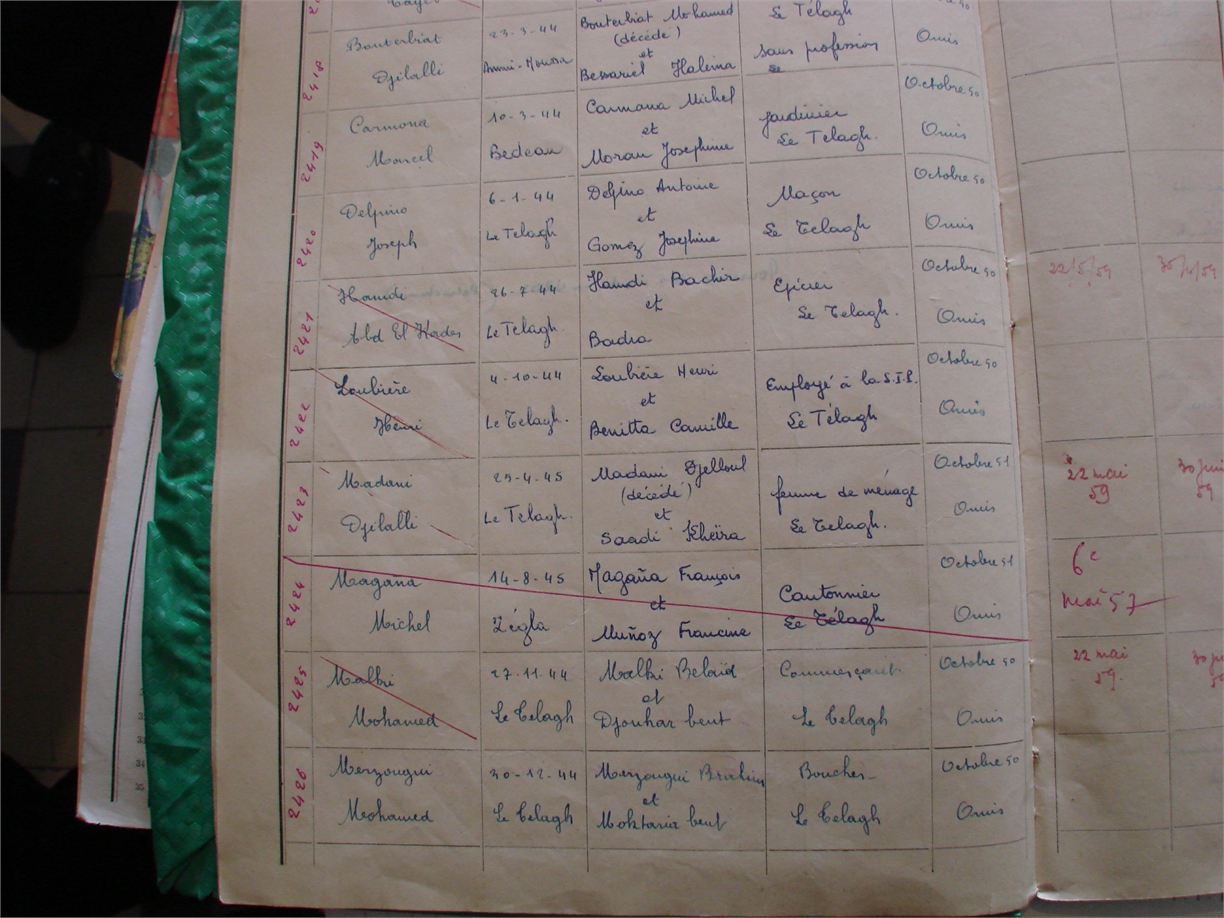 Le Télagh
2418
Bouterbiat
Djilalli
23-3-44
Bouterbiat Mohamed
(décédé)
et
Bessariet Halema
sans profession
Omis
2419
Carmona
Marcel
10-3-44
Bedeau
Carmona Michel
et
Moran Josephine
jardinier
Le Telagh.
Octobre 50
Omis
2420
Delpino
Joseph
6-1-44
Le Telagh
Delpino Antoine
et
Gomez Josephine
Maçon
Le Telagh
Octobre 50
Omis
2421
Hamdi
Abd El Kader
26-7-44
Le Telagh
Hamdi Bachir
et
Badra
Epicier
Le Telagh.
Octobre 50
Omis
22/5/59
2422
Loubière
Henri
4-10-44
Le Telagh.
Loubière Henri
et
Benitta Camille
Employé à la S.I.P.
Le Télagh
Octobre 50
Omis
2423
Madani
Djilalli
25-4-45
Le Telagh.
Madani Djelloul
(décédé)
et
Saadi Kheïra
femme de ménage
Le Telagh.
Octobre 51
Omis
22 mai
59
30 juin
59
2424
Magaña
Michel
14-8-45
Zégla
Magaña François
et
Muñoz Francine
Cantonnier
Le Télagh
Octobre 51
Omis
6e
mai 57
2425
Malki
Mohamed
27-11-44
Le Telagh
Malki Belaïd
et
Djouhar bent
Commerçant
Le Telagh
Octobre 50
Omis
22 mai
59.
2426
Merzougui
Mohamed
30-12-44
Le Telagh
Merzougui Brahim
et
Moktaria bent
Boucher
Le Telagh
Octobre 50
Omis